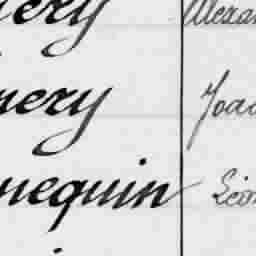 nery Alexan
nery Joac
nequin Léon